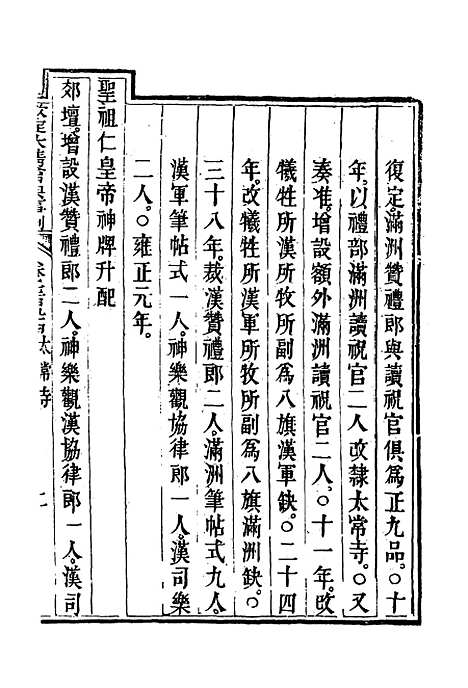 復定滿洲贊禮郎與讀祝官俱爲正九品。○十
年。以禮部滿洲讀祝官二人改隸太常寺。○又
奏准。增設額外滿洲讀祝官二人。○十一年。改
犧牲所漢所牧所副爲八旗漢軍缺。○二十四
年。改犧牲所漢軍所牧所副爲八旗滿洲缺。○
三十八年。裁漢贊禮郎二人。滿洲筆帖式九人。
漢軍筆帖式一人。神樂觀協律郎一人。漢司樂
二人。○雍正元年。
聖祖仁皇帝神牌升配
郊壇。增設漢贊禮郎二人。神樂觀漢協律郎一人。漢司